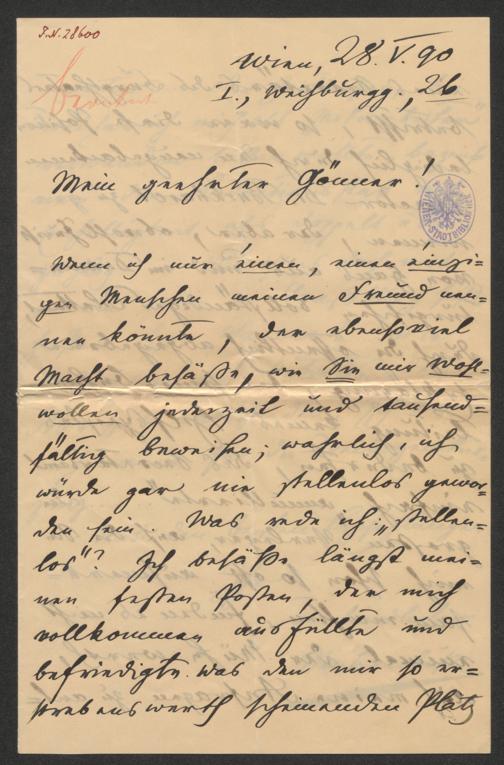 J.N. 28600
Wien, 28. V. 90
I., Weihburgg., 26
Mein geehrter Gönner!
WIENER STADTBIBLIOTHEK
Wenn ich nur einen, einen einzi=
gen Menschen meinen Freund nen=
nen könnte, der ebensoviel
Macht besäße, wie Sie mir Wohl=
wollen jederzeit und tausend=
fältig beweisen; wahrlich, ich
würde gar nie stellenlos gewor=
den sein. Was rede ich: „stellen=
los"? Ich besäße längst mei=
nen festen Posten, der mich
vollkommen ausfüllte und
befriedigte. Was den mir so er=
strebenswerth scheinenden Platz